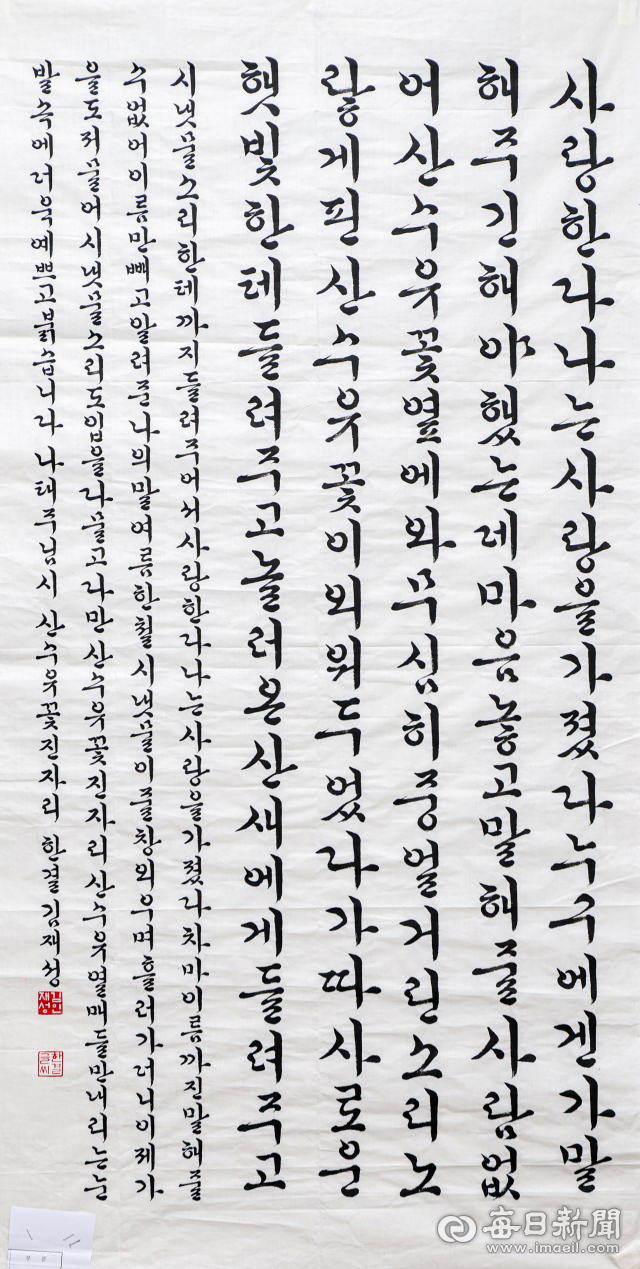 사랑한다나는사랑을가졌다누구에겐가말
해주긴해야했는데마음놓고말해줄사람없
어산수유꽃옆에와무심히중얼거린소리노
랗게핀산수유꽃이외워두었다가따사로운
햇빛한테들려주고놀러온산새에게들려주고
시냇물소리한테까지들려주어서사랑한다나는사랑을가졌다차마이름까진말해줄
수없어이름만빼고알려준나의말여름한철시냇물이줄창외우며흘러가더니이제가
을도저물어시냇물소리도입을다물고다만산수유꽃진자리산수유열매들만내리는눈
발속에더욱예쁘고붉습니다 나태주님시 산수유꽃진자리 한결김재성
김재성인
한결글씨
每日新聞
www.imaeil.com